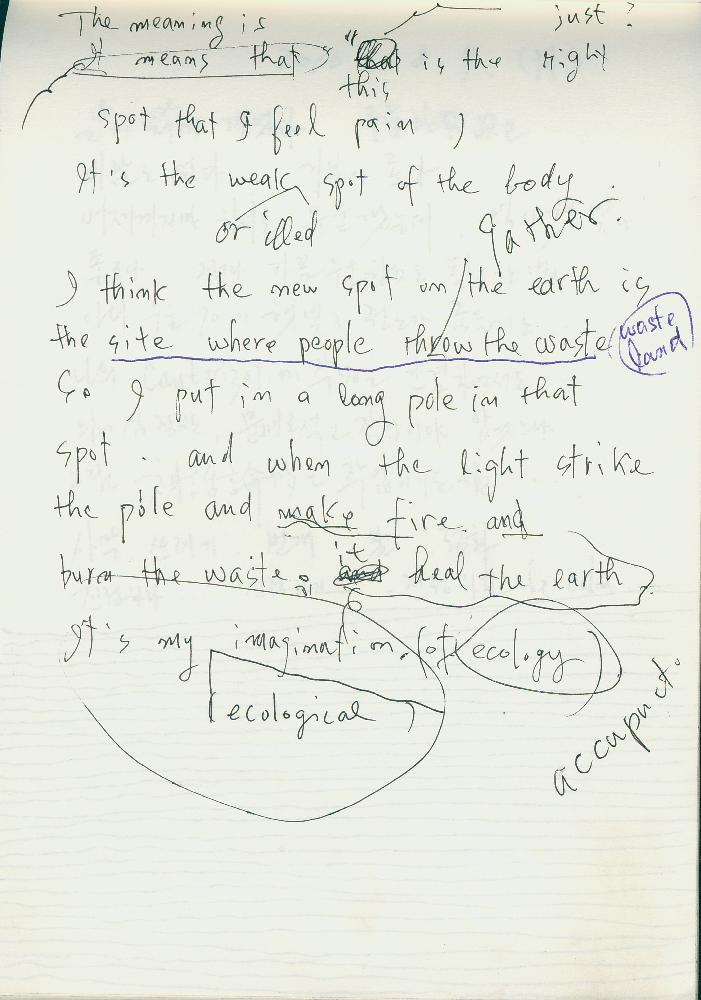 The meaning is just?
It means that " is the right
this
spot that I feel pain,
It's the weak spot of the body.
or illed gather.
I think the new spot on the earth is
the site where people throw the waste
waste land
So I put in a long pole in that
spot. and when the light strike
the pole and make fire and
it
burn the waste heal the earth
It's my imagination. (of ecology)
(ecological)
accupuct.